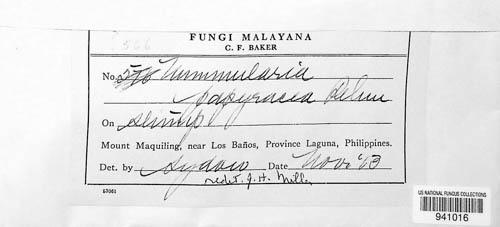 566
FUNGI MALAYANA
C. F. BAKER
No. 576 Nummularia
papyracea Rehm
On stump
Mount Maquiling, near Los Baños, Province Laguna, Philippines.
Det. by Sydow Date Nov. '13
redet. J. H. Mill.
57061
US NATIONAL FUNGUS COLLECTIONS
941016